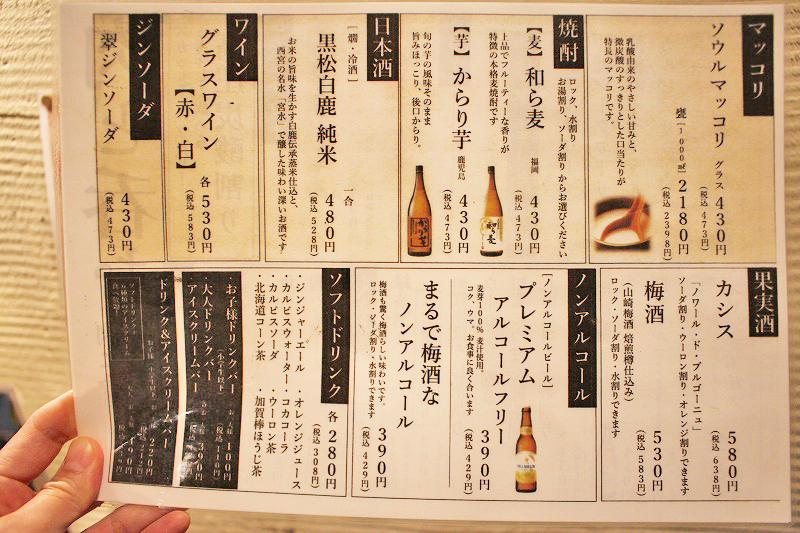 マッコリ
ソウルマッコリ グラス 430円
(税込 473円)
甕[1000㎖] 2180円
(税込 2398円)
乳酸由来のやさしい甘みと、
微炭酸のすっきりとした口当たりが
特長のマッコリです。
焼酎
ロック、水割り
お湯割り、ソーダ割り からお選びください
【麦】和ら麦 福岡 430円
(税込 473円)
上品でフルーティーな香りが
特徴の本格麦焼酎です
【芋】からり芋 鹿児島 430円
(税込 473円)
旬の芋の風味そのまま
旨みほっこり、後口からり。
日本酒
[燗・冷酒]
黒松白鹿 純米 一合 480円
(税込 528円)
お米の旨味を生かす白鹿伝承蒸米仕込と、
西宮の名水「宮水」で醸した味わい深いお酒です
ワイン
グラスワイン
【赤・白】 各 530円
(税込 583円)
ジンソーダ
翠ジンソーダ 430円
(税込 473円)
果実酒
カシス 580円
(税込 638円)
「ノワール・ド・ブルゴーニュ」
ソーダ割り・ウーロン割り・オレンジ割りできます
梅酒 530円
(税込 583円)
(山崎梅酒 焙煎樽仕込み)
ロック・ソーダ割り・水割りできます
ノンアルコール
[ノンアルコールビール]
プレミアム
アルコールフリー 390円
(税込 429円)
麦芽100%麦汁使用。
コク、ウマ、お食事に良く合います
まるで梅酒な
ノンアルコール 390円
(税込 429円)
梅酒も驚く梅酒らしい味わいです。
ロック・ソーダ割り・水割りできます
ソフトドリンク 各 280円
(税込 308円)
・ジンジャーエール ・オレンジジュース
・カルピスウォーター ・コカコーラ
・カルピスソーダ ・ウーロン茶
・北海道コーン茶 ・加賀棒ほうじ茶
・お子様ドリンクバー
(小学生以下) お一人様 100円
(税込 110円)
・大人ドリンクバー
・アイスクリームバー 390円
ドリンク&アイスクリームバー
ソフトドリンクと
食べ放題！
220円